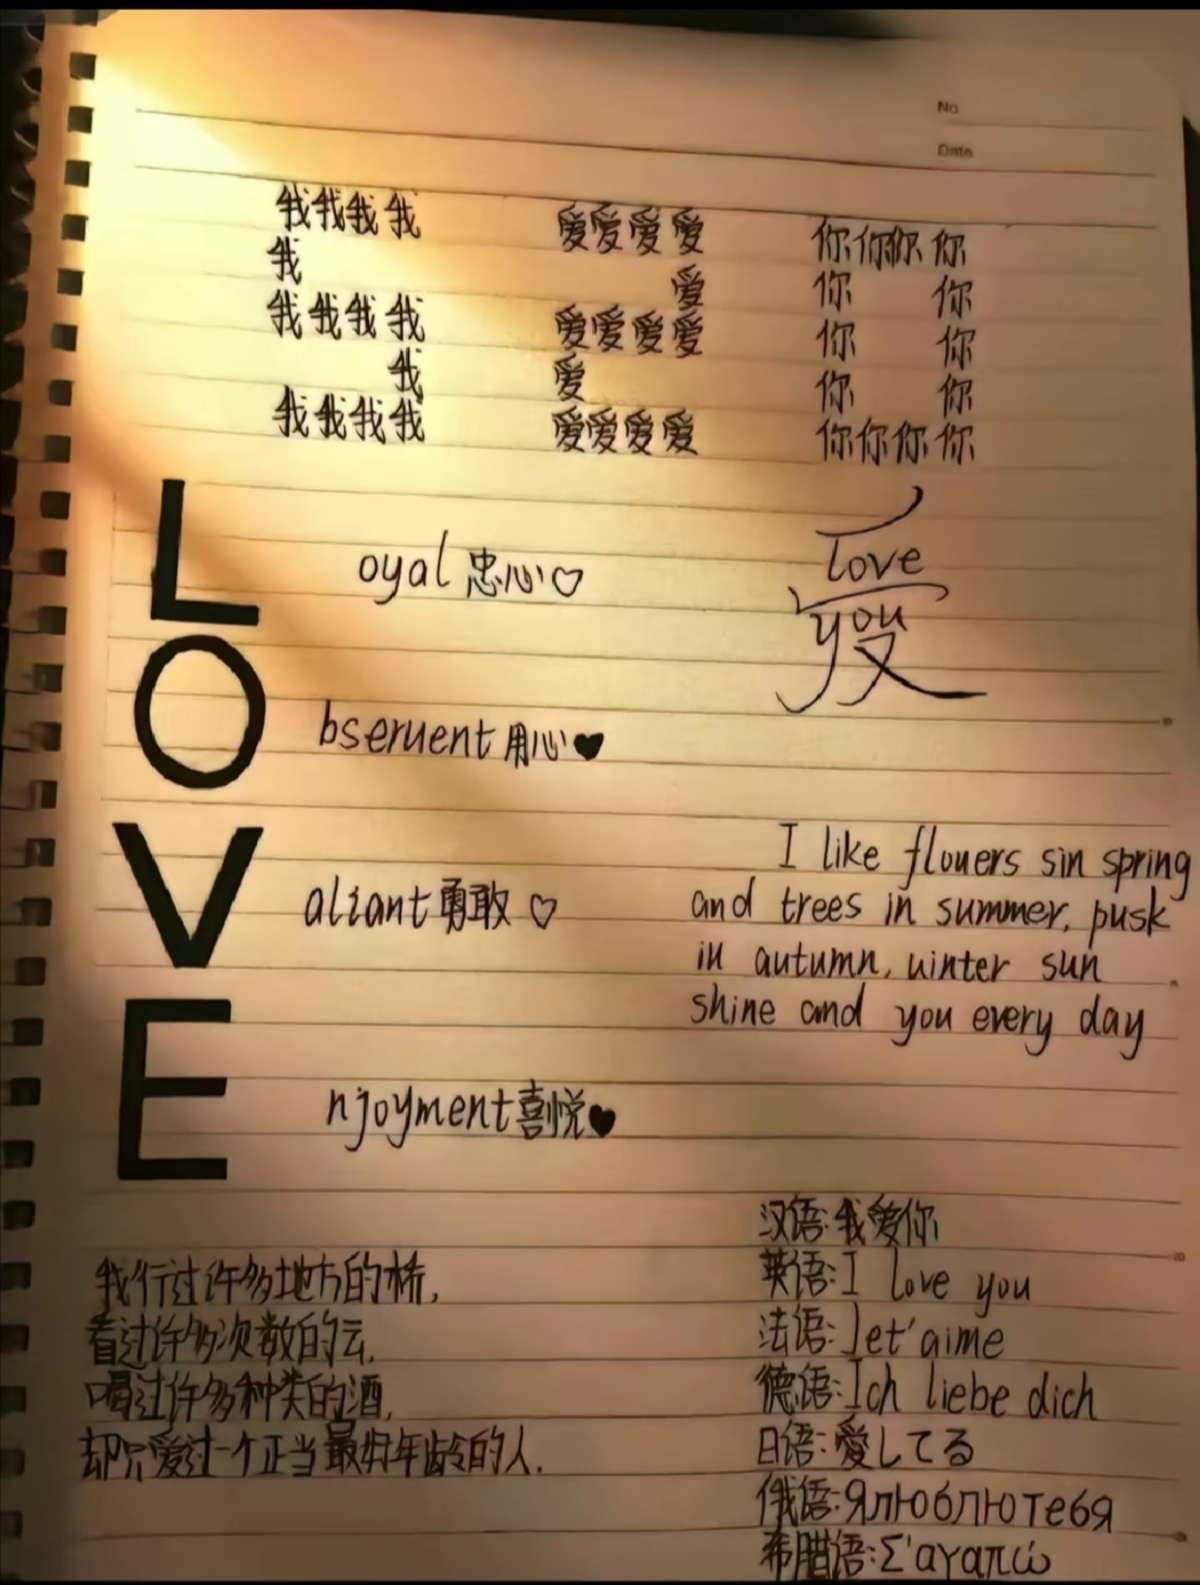 No
Date
我我我我 爱爱爱爱 你你你你
我 爱 你 你
我我我我 爱爱爱爱 你 你
我 爱 你 你
我我我我 爱爱爱爱 你你你你
L oyal 忠心♡
love
you
O bseruent 用心♥
V aliant 勇敢 ♡
I like flouers sin spring
and trees in summer, pusk
in autumn, uinter sun
shine and you every day
E njoyment 喜悦♥
我行过许多地方的桥,
看过许多次数的云,
喝过许多种类的酒,
却只爱过一个正当最好年龄的人.
汉语:我爱你
英语:I love you
法语:Jet'aime
德语:Ich liebe dich
日语:愛してる
俄语:Ялюблютебя
希腊语:Σ'αγαπώ